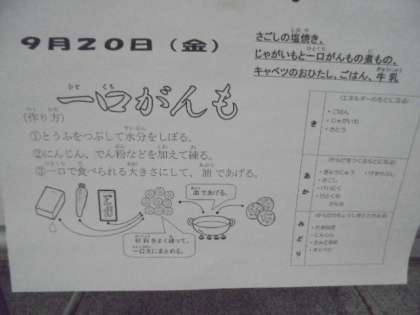 9月20日(金)
さごしの塩焼き、
じゃがいもと一口がんもの煮もの、
キャベツのおひたし、ごはん、牛乳
一口がんも
(作り方)
①とうふをつぶして水分をしぼる。
②にんじん、でん粉などを加えて練る。
③一口で食べられる大きさにして、油であげる。
油であげる。
材料をよく練って、
一口大にまとめる。
き
・ごはん
・じゃがいも
・さとう
あか
・ぎゅうにゅう
・さごし
みどり
・にんじん
・キャベツ